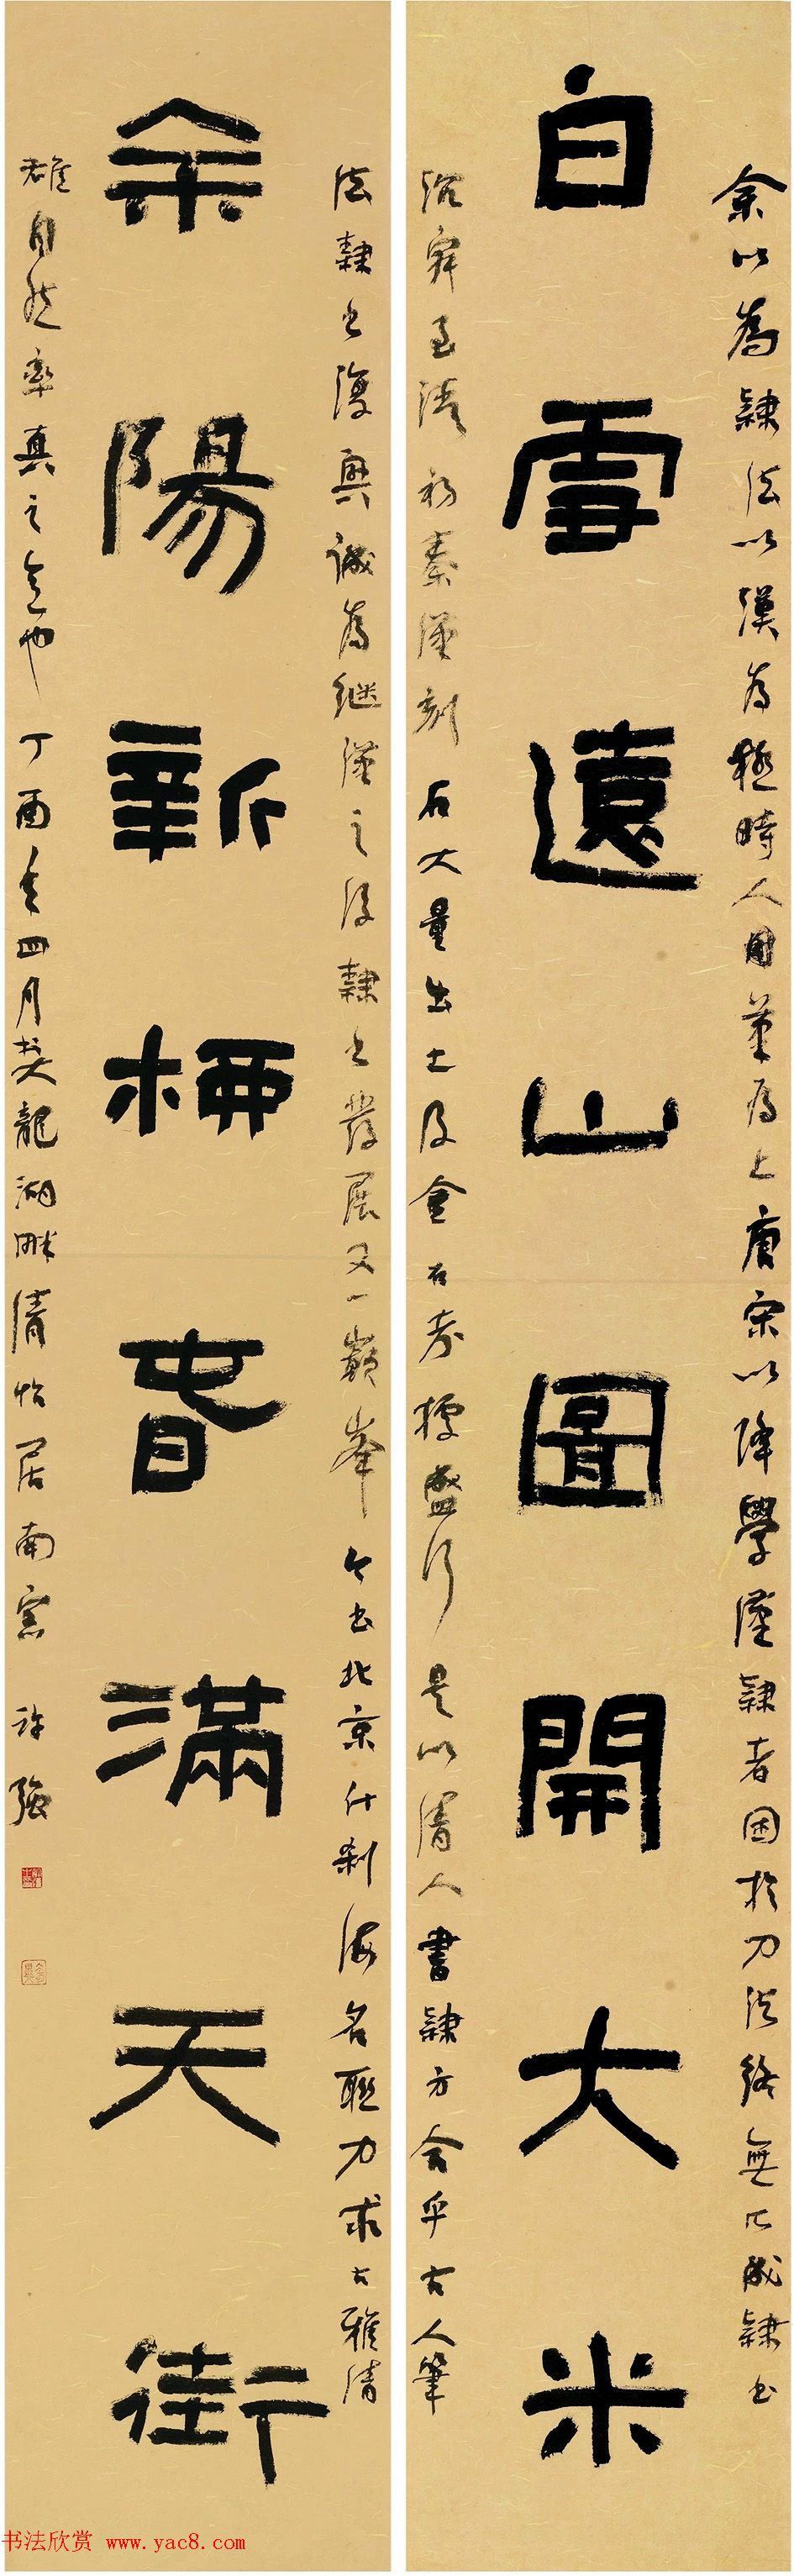 余以為隸法以漢為極時人用筆為上唐宋以降學漢隸者困於刀法終無以成隸書
白雪遠山圖開大米
石大量出土及金石考據盛行是以清人書隸方合乎古人筆
法隸書復興誠為繼漢之後隸書發展又一巔峯今書北京什刹海名聯力求古雅清
余陽新柳春滿天街
雄自然率真之意也丁酉年四月於大龍湖畔清怡居南窗許強
书法欣赏 www.yac8.com